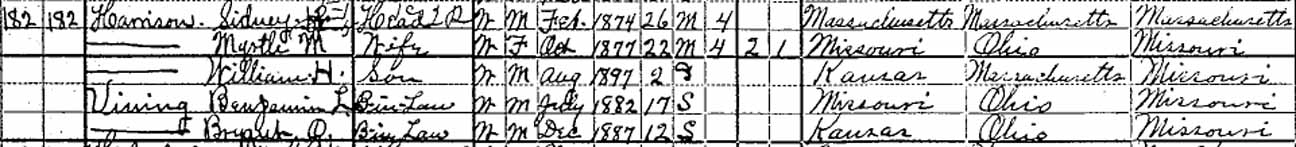 182 182 Harrison. Sidney Head W M Feb. 1874 26 M 4 Massachusetts Massachusetts Massachusetts
—— Myrtle M Wife W F Oct 1877 22 M 4 2 1 Missouri Ohio Missouri
—— William H. Son W M Aug 1897 2 S Kansas Massachusetts Missouri
Vining Benjamin L. Bro-Law W M July 1882 17 S Missouri Ohio Missouri
—— Bryant O. Bro Law W M Dec 1887 12 S Kansas Ohio Missouri